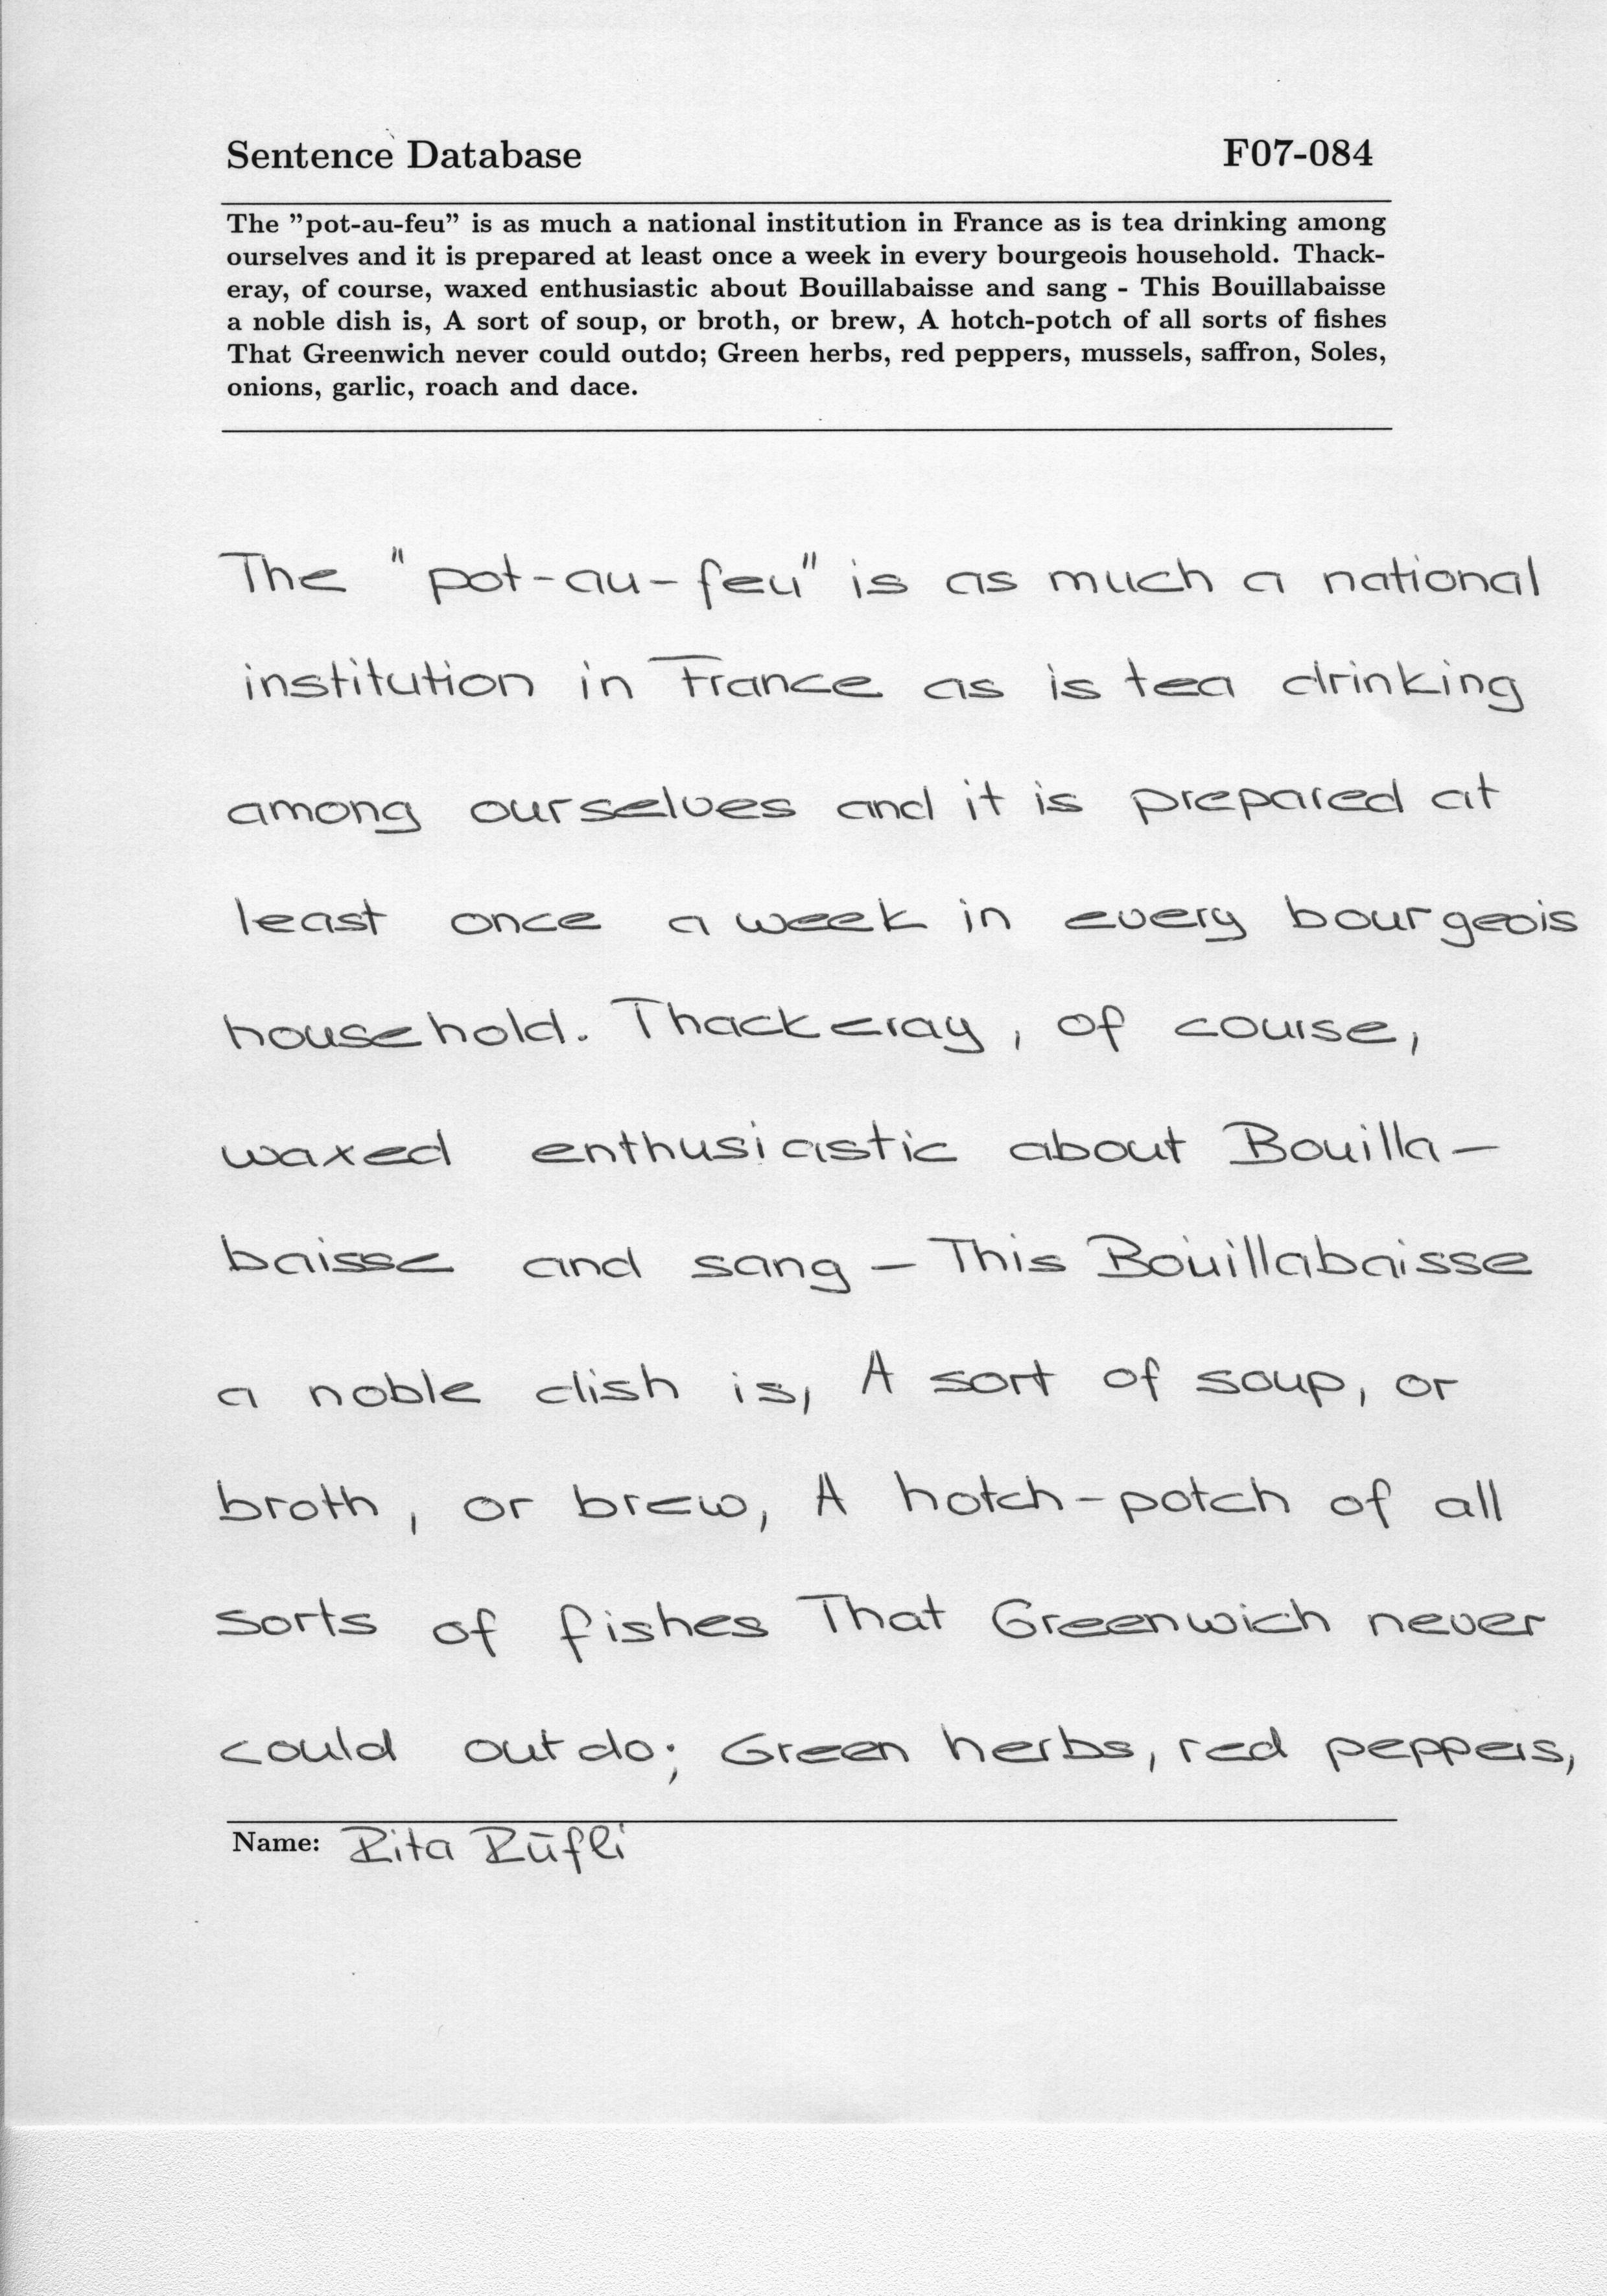 Sentence Database F07-084
The "pot-au-feu" is as much a national institution in France as is tea drinking among
ourselves and it is prepared at least once a week in every bourgeois household. Thack-
eray, of course, waxed enthusiastic about Bouillabaisse and sang - This Bouillabaisse
a noble dish is, A sort of soup, or broth, or brew, A hotch-potch of all sorts of fishes
That Greenwich never could outdo; Green herbs, red peppers, mussels, saffron, Soles,
onions, garlic, roach and dace.
The "pot-au-feu" is as much a national
institution in France as is tea drinking
among ourselves and it is prepared at
least once a week in every bourgeois
household. Thackeray, of course,
waxed enthusiastic about Bouilla-
baisse and sang - This Bouillabaisse
a noble dish is, A sort of soup, or
broth, or brew, A hotch-potch of all
sorts of fishes That Greenwich never
could outdo; Green herbs, red peppers,
Name: Rita Rüfli